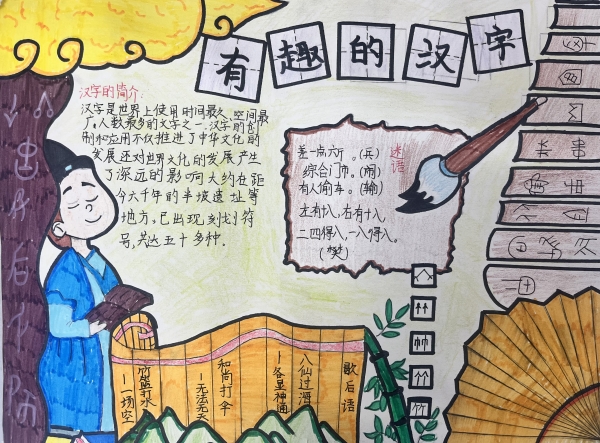 有趣的汉字
汉字的简介:
汉字是世界上使用时间最久、空间最
广、人数最多的文字之一,汉字的创
制和应用不仅推进了中华文化的
发展还对世界文化的发展产生
了深远的影响大约在距
今六千年的半坡遗址等
地方,已出现刻划符
号,共达五十多种.
谜语
差一点六斤。(兵)
综合门市。(闹)
有人偷车。(输)
左有十八,右有十八,
二四得八,一八得八。
(樊)
歇后语
八仙过海
—各显神通
和尚打伞
—无法无天
竹篮打水
—一场空
竹